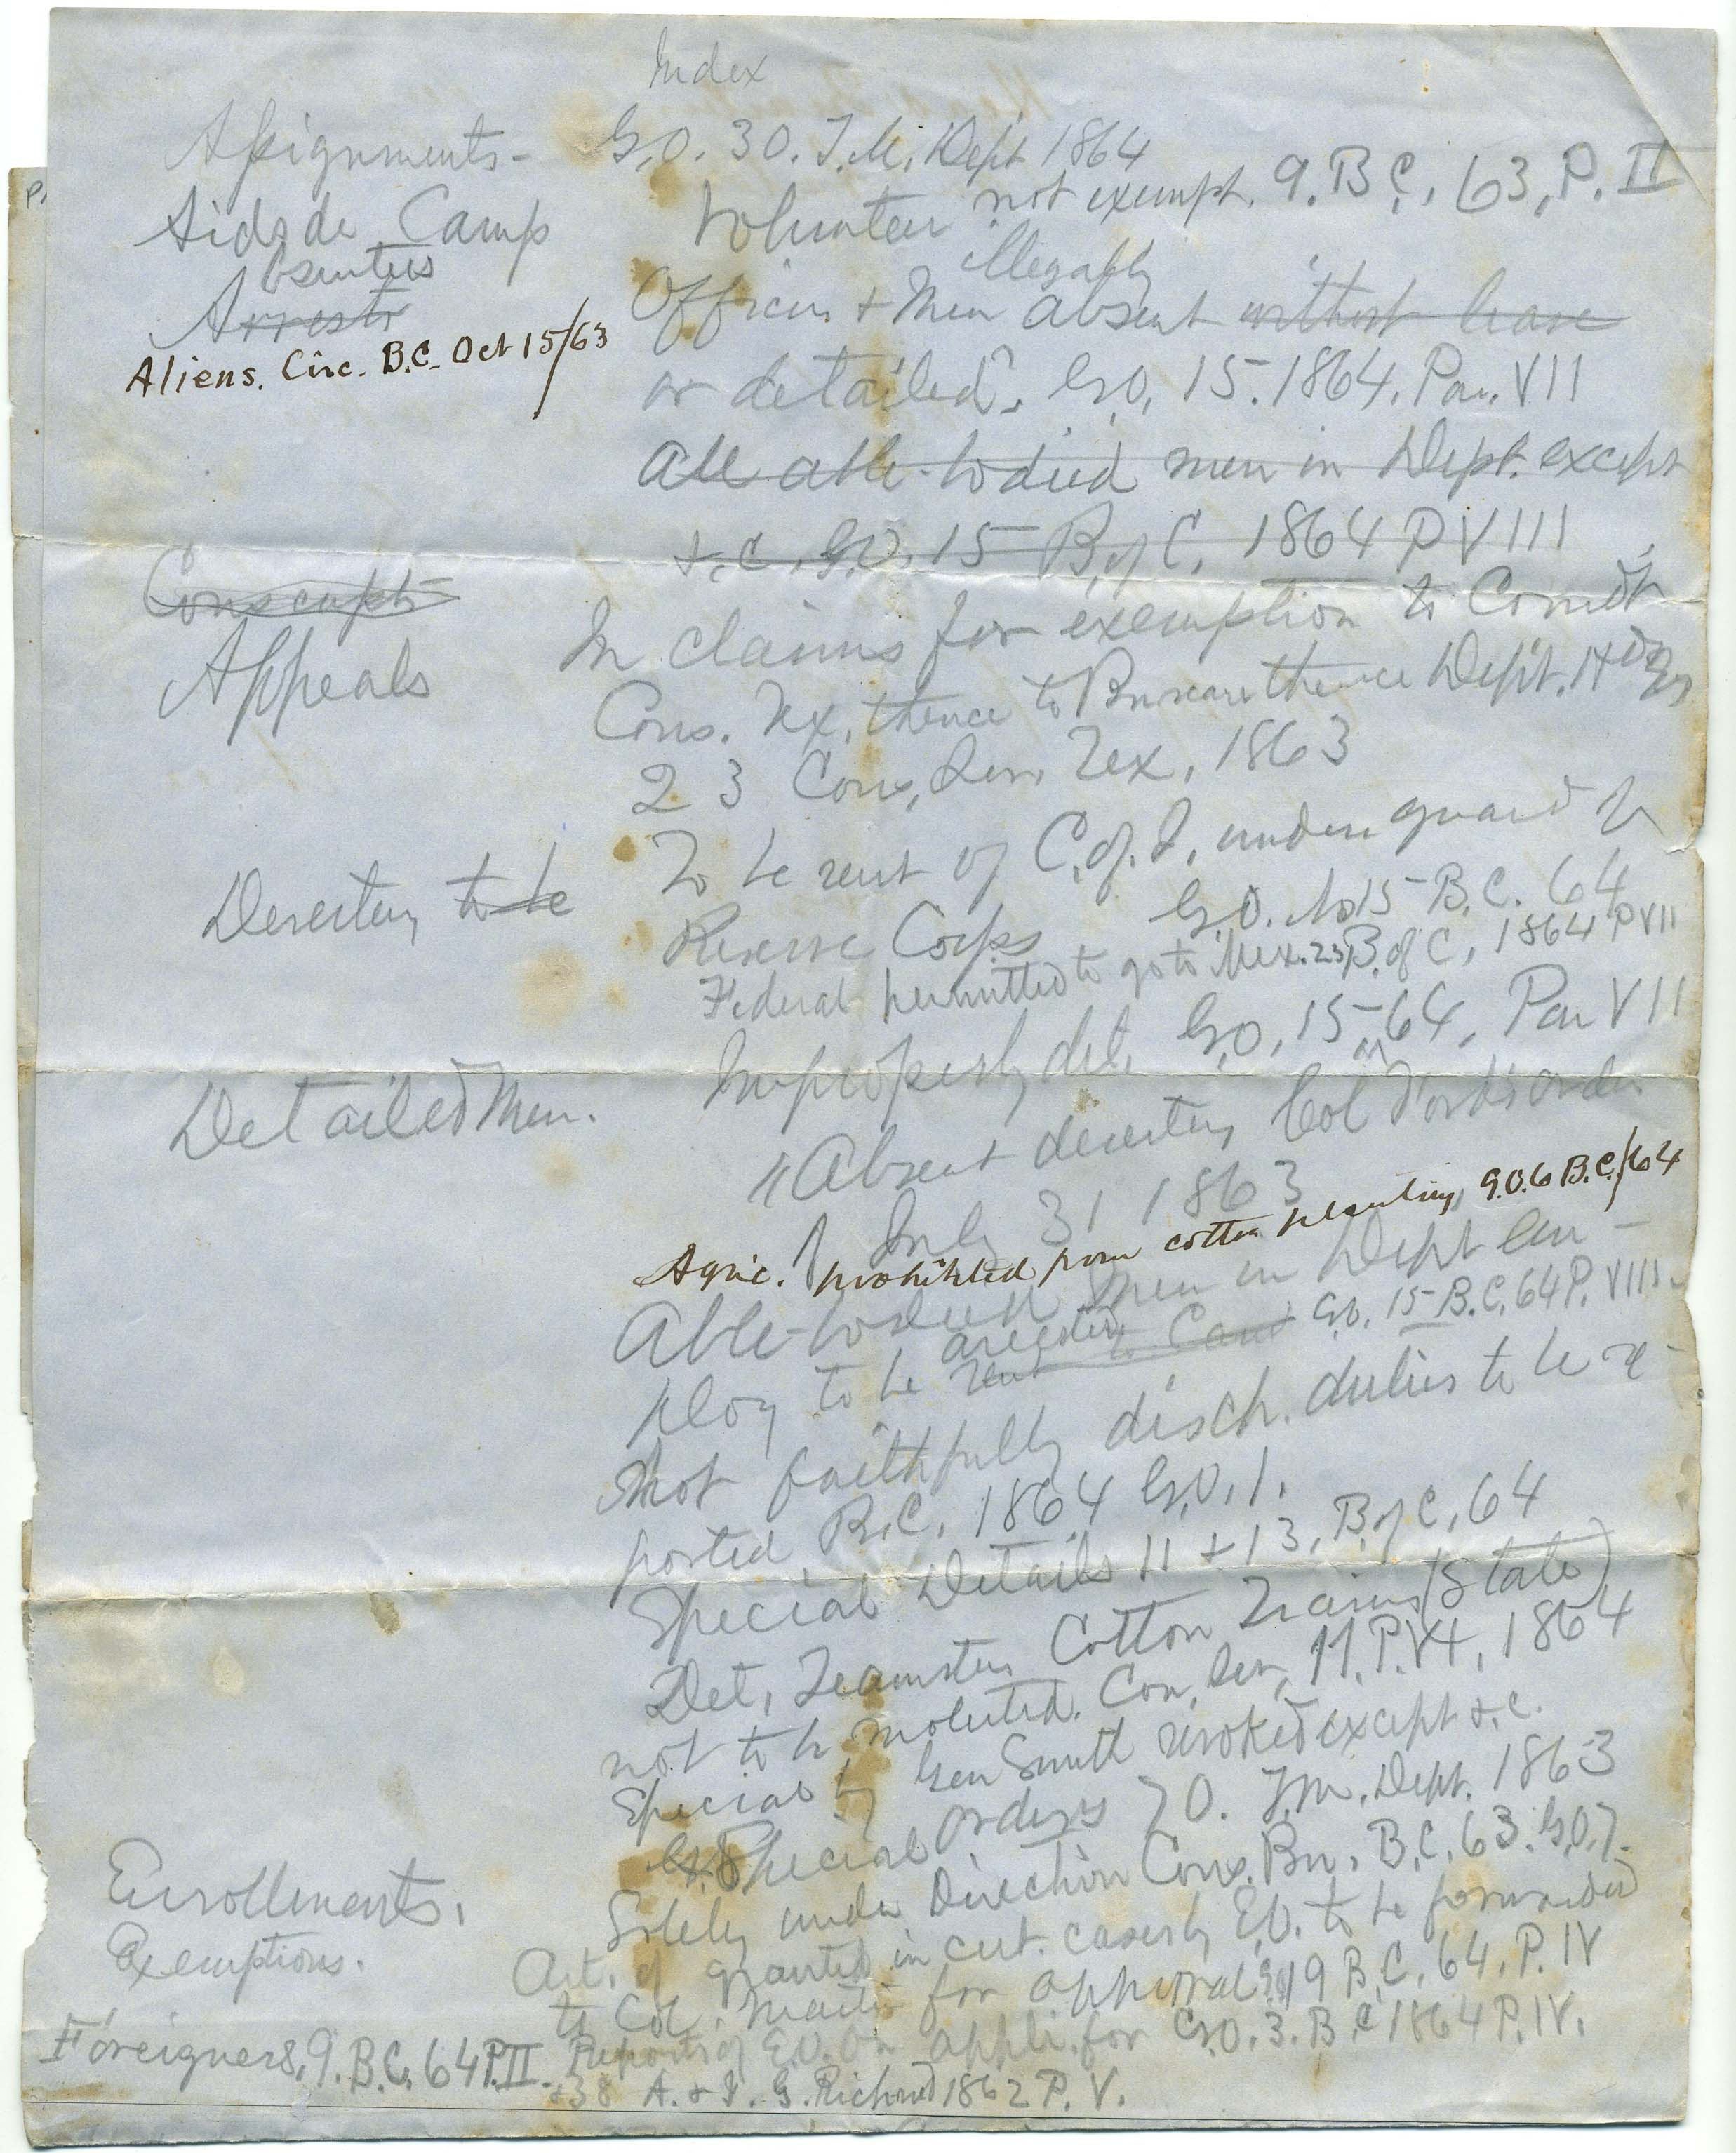 Index
Assignments - G.O. 30. T.M. Dept 1864
Aids de Camp Volunteer not exempt. 9. B.C. 63, P. II
Absentees Arrests Officers & Men absent illegally without leave
Aliens. Circ. B.C. Oct 15/63
or detailed. G.O. 15. 1864. Par. VII
All able-bodied men in Dept. except
&.c. G.O. 15 B. of C. 1864 P VIII
Conscripts
Appeals In claims for exemption to Comdt
Cons. Tex. thence to Bureau thence Dept. Hdqrs
23 Cons. Ser. Tex, 1863
Deserters to be To be sent of C. of I. under guard
Reserve Corps G.O. No 15 B.C. 64
Federal permitted to go to Mex. 23 B. of C, 1864 P VII
Detailed Men. Improperly det. G.O. 15 - 64, Par VII
" Absent deserters Col Fords order
July 31 1863
Agric. prohibited from cotton planting, G.O. 6 B.C./64
Able-bodied men in Dept em-
ploy to be arrested sent to G.O. 15 B.C. 64 P. VIII.
Not faithfully disch. duties to be re-
ported B.C. 1864 G.O. 1.
Special Details 11 & 13, B. of C, 64
Det. Teamsters Cotton Trains (State)
not to be molested. Con. Ser, 11. P. VI, 1864
Special by Gen Smith revoked except &.c.
Special orders 70. T.M. Dept. 1863
Enrollments. Solely under Direction Cons. Bu. B.C. 63. G.O. 7.
Exemptions. Act. of granted in cert. cases by E.O. to be forwarded
to Col. for approval 19 B.C. 64. P. IV
Foreigners. 9. B.C. 64 P. II. Reports of E.O. on appli. for G.O. 3. B.C 1864 P. IV.
& 38 A. & I. G. Richmd 1862 P. V.